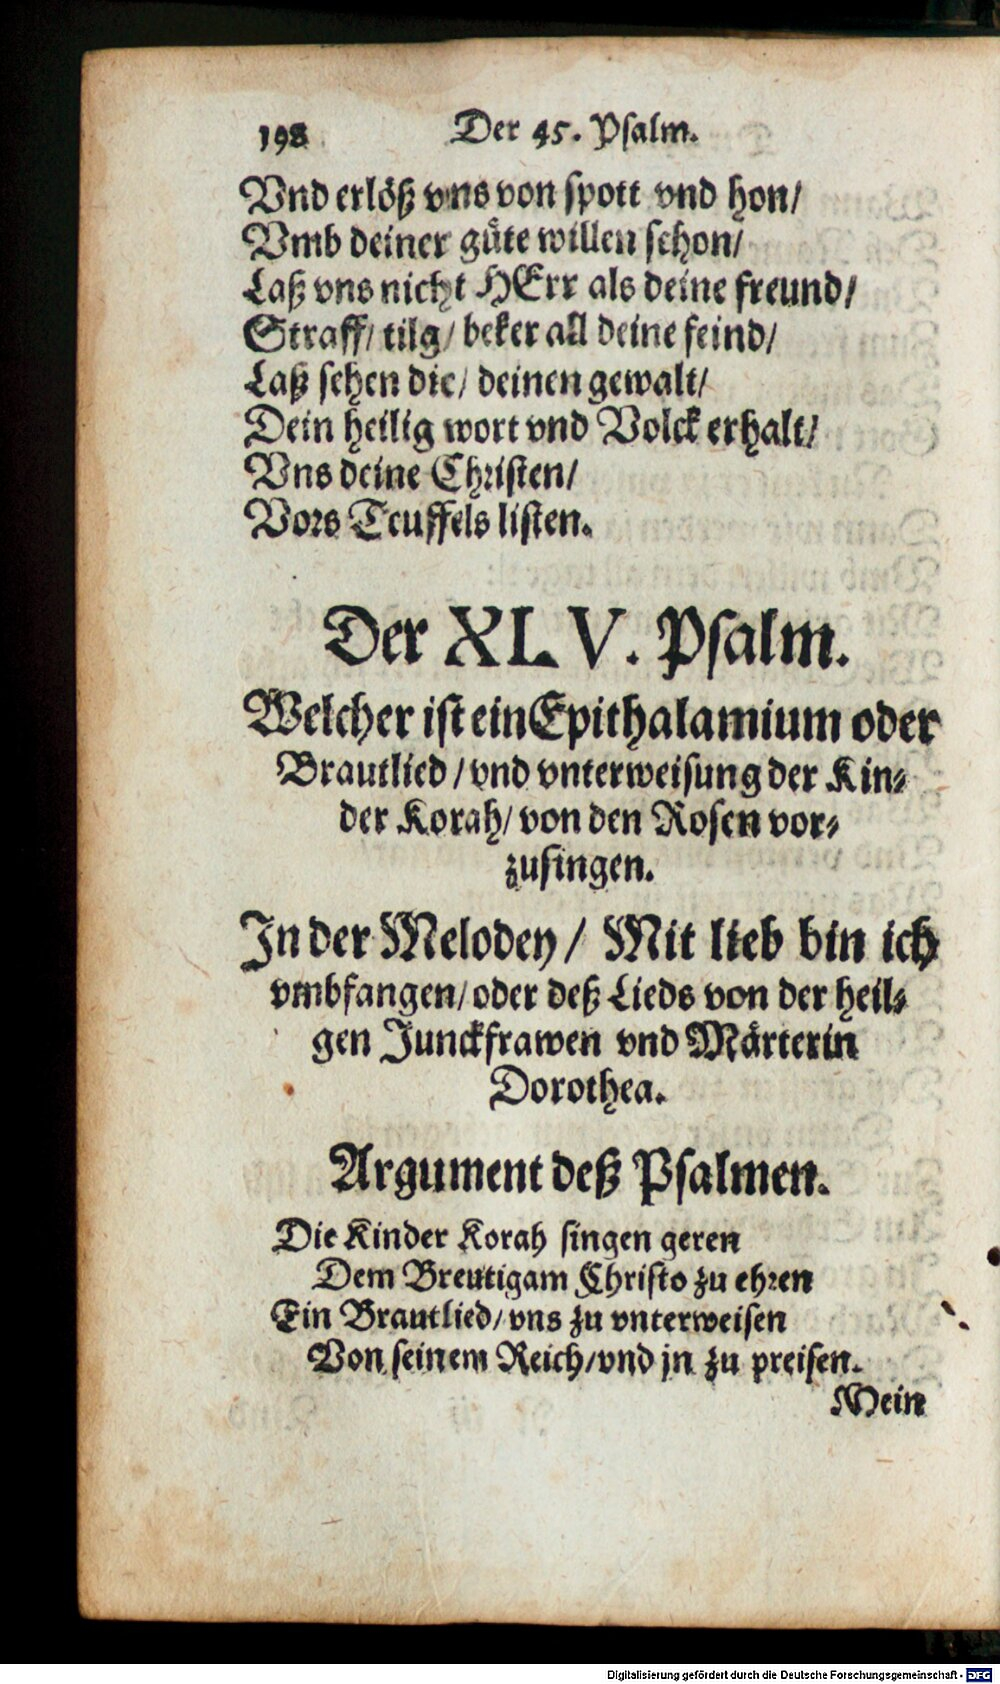 198 Der 45. Psalm.
Vnd erlöß vns von spott vnd hon/
Vmb deiner gůte willen schon/
Laß vns nicht HErr als deine freund/
Straff/ tilg/ beker all deine feind/
Laß sehen die/ deinen gewalt/
Dein heilig wort vnd Volck erhalt/
Vns deine Christen/
Vors Teuffels listen.
Der XLV. Psalm.
Welcher ist ein Epithalamium oder
Brautlied/ vnd vnterweisung der Kin-
der Korah/ von den Rosen vor-
zusingen.
In der Melodey/ Mit lieb bin ich
vmbfangen/ oder deß Lieds von der heil-
gen Junckfrawen vnd Märterin
Dorothea.
Argument deß Psalmen.
Die Kinder Korah singen geren
Dem Breutigam Christo zu ehren
Ein Brautlied/ vns zu vnterweisen
Von seinem Reich/ vnd jn zu preisen.
Mein
Digitalisierung gefördert durch die Deutsche Forschungsgemeinschaft - DFG